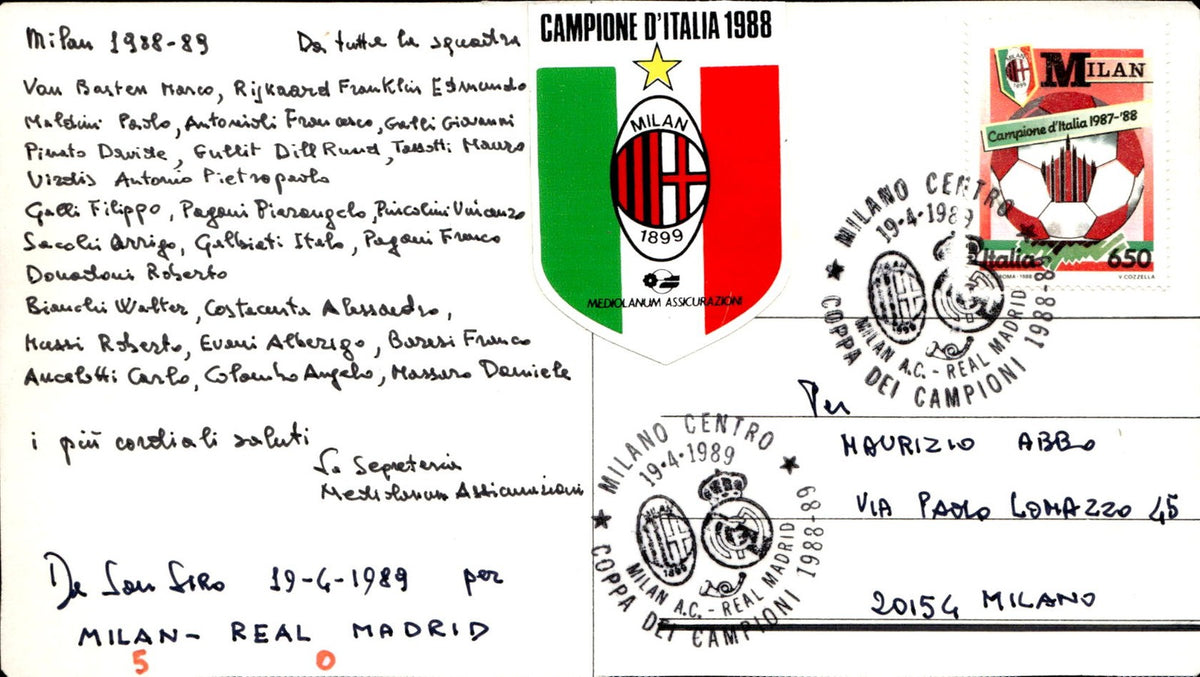 Milan 1988-89 Da tutta la squadra
Van Basten Marco, Rijkaard Franklin Edmundo
Maldini Paolo, Antonioli Francesco, Galli Giovanni
Pinato Davide, Gullit Dill Ruud, Tassotti Mauro
Virdis Antonio Pietropaolo
Galli Filippo, Pagani Pierangelo, Pincolini Vincenzo
Sacchi Arrigo, Galbiati Italo, Pagani Franco
Donadoni Roberto
Bianchi Walter, Costacurta Alessandro,
Mussi Roberto, Evani Alberigo, Baresi Franco
Ancelotti Carlo, Colombo Angelo, Massaro Daniele
i più cordiali saluti
La Segreteria
Mediolanum Assicurazioni
Da San Siro 19-4-1989 per
MILAN - REAL MADRID
5 0
CAMPIONE D'ITALIA 1988
MILAN
1899
MEDIOLANUM ASSICURAZIONI
MILAN
1899
MILAN
Campione d'Italia 1987-'88
Italia 650
ROMA - 1988 V. COZZELLA
MILANO CENTRO
19-4-1989
MILAN
1899
MILAN A.C. - REAL MADRID
COPPA DEI CAMPIONI 1988-8
MILANO CENTRO
19-4-1989
MILAN
1899
MILAN A.C. - REAL MADRID
COPPA DEI CAMPIONI 1988-89
Per
MAURIZIO ABBO
VIA PAOLO LOMAZZO 45
20154 MILANO